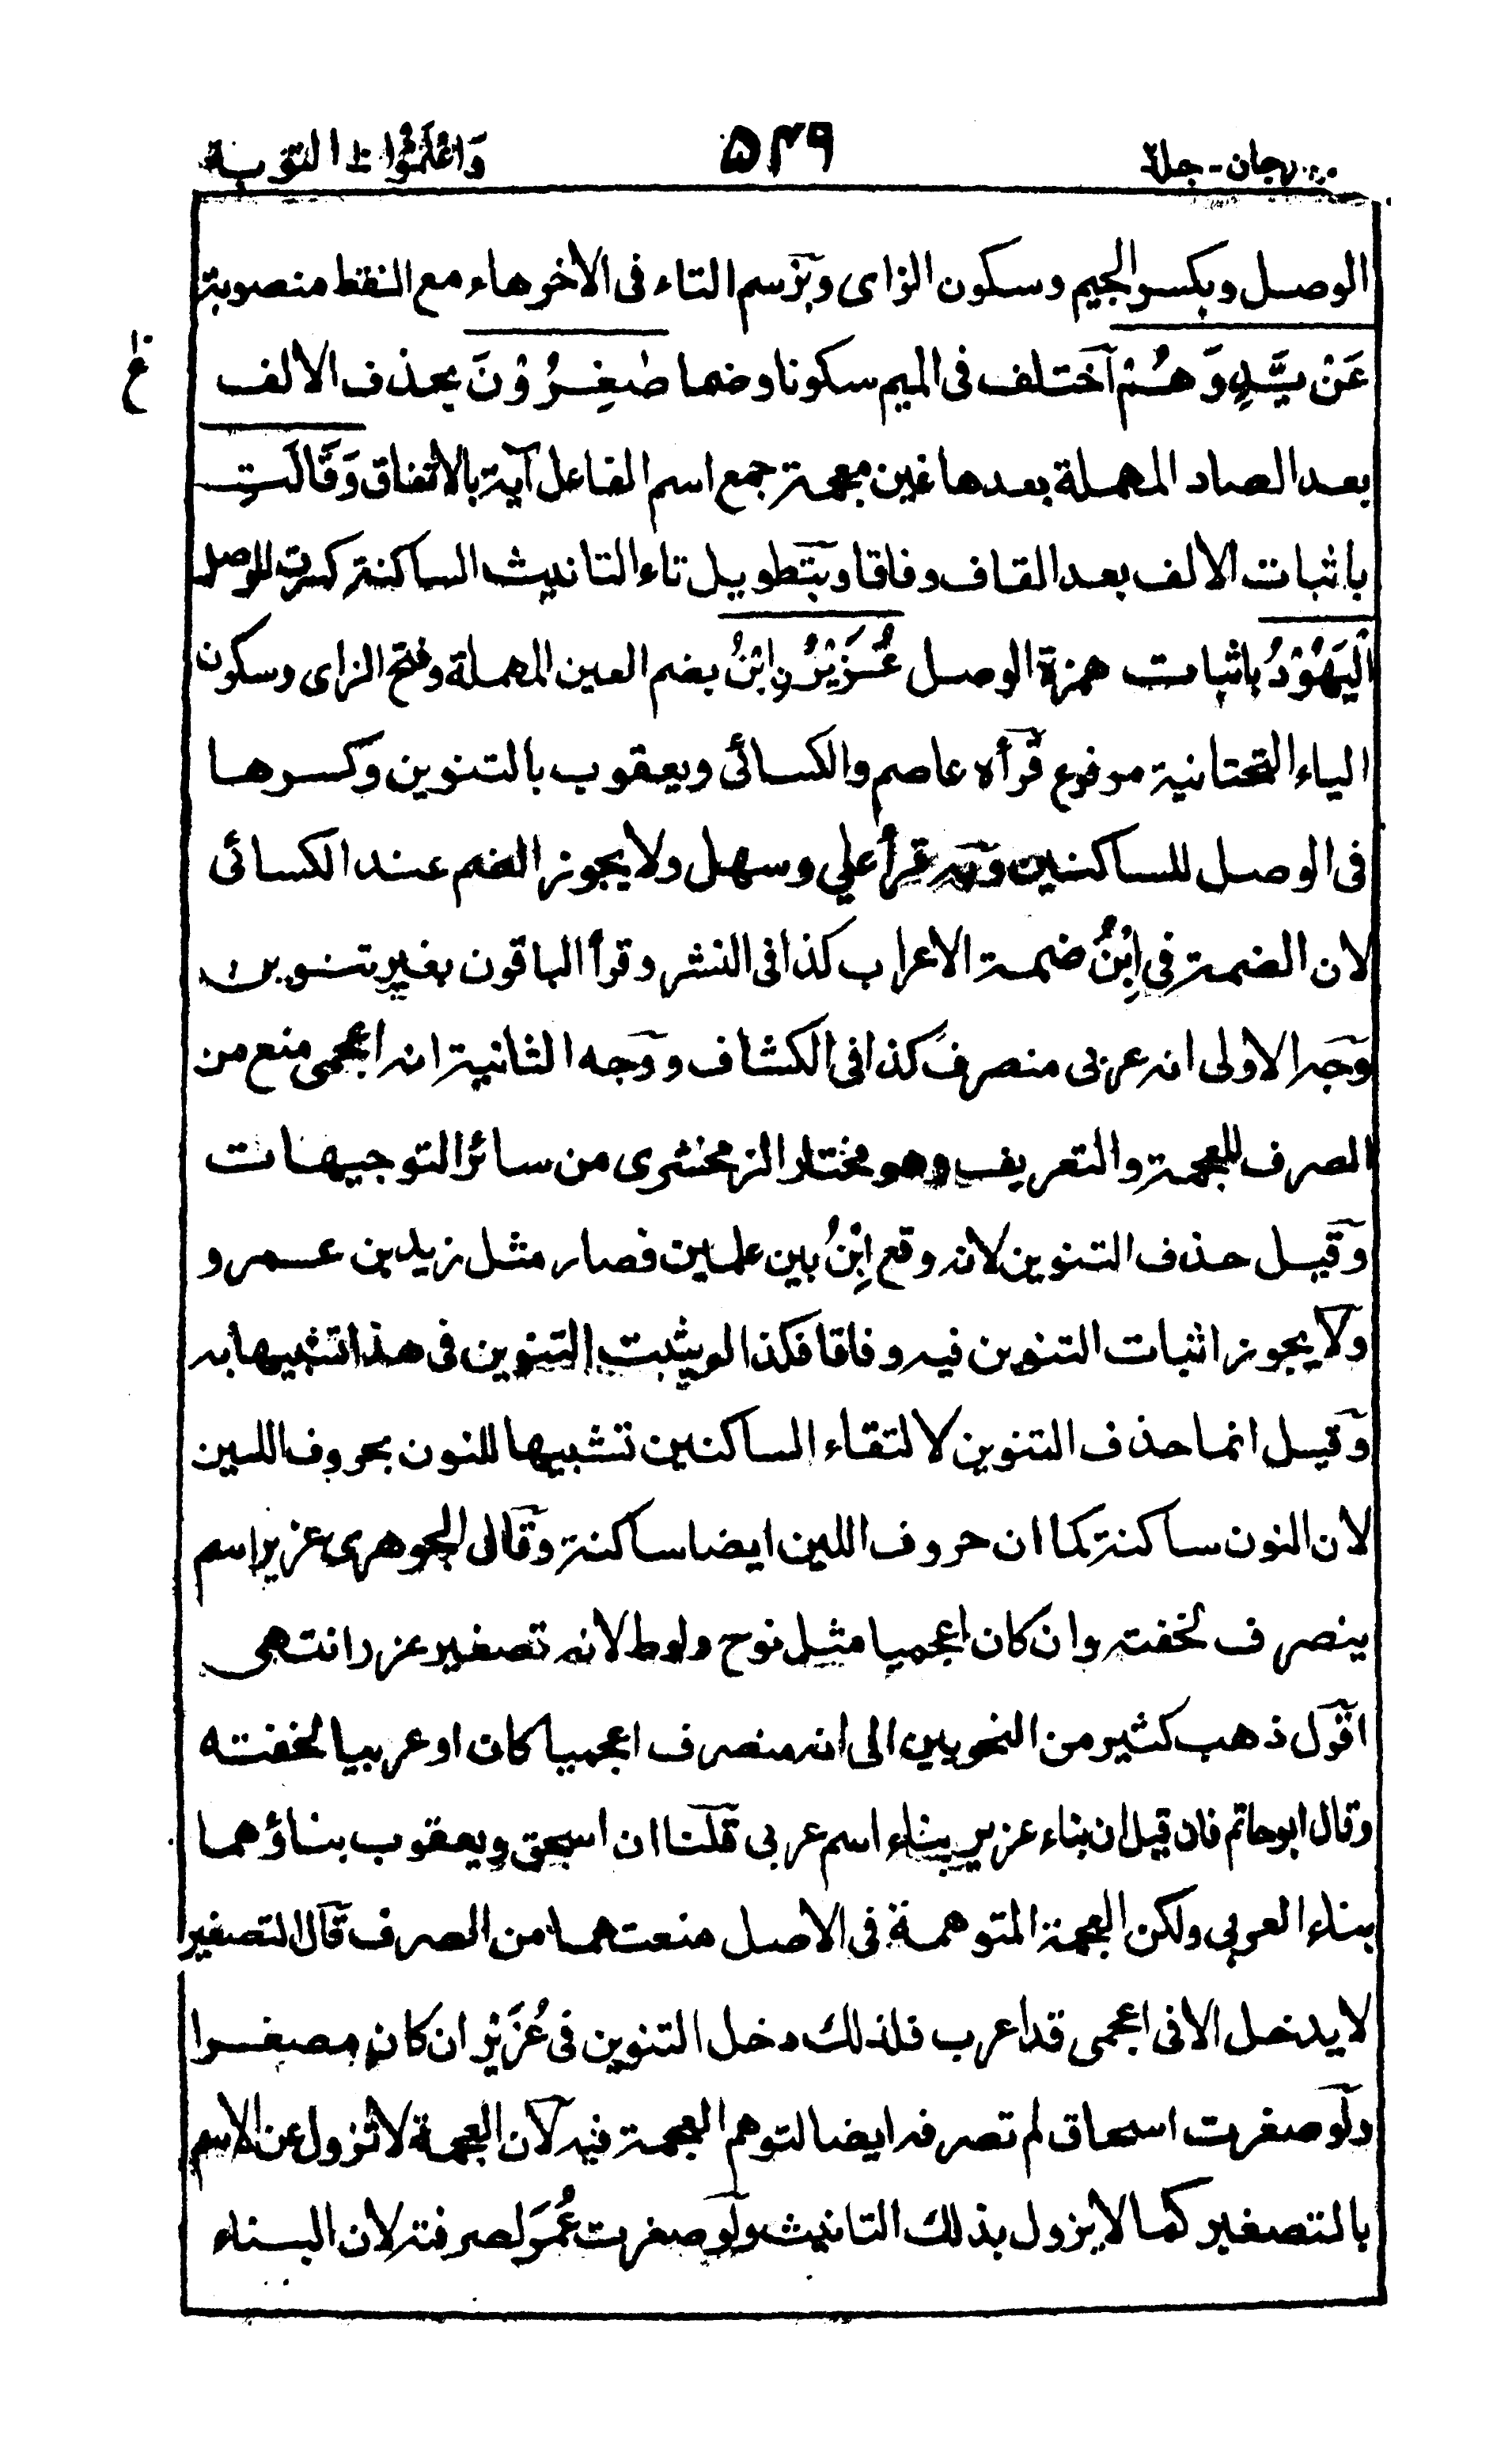 رجان - جلد ٢ ٥٤٩ وَاعْلَمُوْا ١٠ التوبة
الوصل وبكسر الجيم وسكون الزاى وبرسم التاء فى الاخر هاء مع النقط منصوبة
عَنْ يَّدٍ وَّهُمْ اختلف فى الميم سكونا وضما صٰغِرُوْنَ بحذف الالف
ع
بعد الصاد المهملة بعدها غين معجمة جمع اسم الفاعل آية بالاتفاق وَقَالَتِ
باثبات الالف بعد القاف وفاقا وبتطويل تاء التانيث الساكنة كسرت للوصل
الْيَهُوْدُ باثبات همزة الوصل عُزَيْرُ نِ ابْنُ بضم العين المهملة وفتح الزاى وسكون
الياء التحتانية مرفوع قرأه عاصم والكسائى ويعقوب بالتنوين وكسرها
فى الوصل للساكنين وبه قرأ علي وسهل ولا يجوز الضم عند الكسائى
لان الضمة فى ابْنُ ضمة الاعراب كذا فى النشر وقرأ الباقون بغير تنوين
وجه الاولى انه عربى منصرف كذا فى الكشاف ووجه الثانية انه اعجمى منع من
الصرف للعجمة والتعريف وهو مختار الزمخشرى من سائر التوجيهات
وقيل حذف التنوين لانه وقع ابْنُ بين علمين فصار مثل زيد بن عمرو
ولا يجوز اثبات التنوين فيه وفاقا فكذا لو يثبت التنوين فى هذا تشبيها به
وقيل انما حذف التنوين لالتقاء الساكنين تشبيها للنون بحروف اللين
لان النون ساكنة كما ان حروف اللين ايضا ساكنة وقال الجوهرى عزير اسم
ينصرف لخفته وان كان اعجميا مثل نوح ولوط لانه تصغير عزر انتهى
اقول ذهب كثير من النحويين الى انه منصرف اعجميا كان او عربيا لخفته
وقال ابو حاتم فان قيل ان بناء عزير بناء اسم عربى قلنا ان اسحق ويعقوب بناؤهما
بناء العربى ولكن العجمة المتوهمة فى الاصل منعتهما من الصرف قال التصغير
لا يدخل الا فى اعجمى قد اعرب فلذلك دخل التنوين فى عُزَيْر ان كان مصغرا
ولو صغرت اسحاق لم تصرفه ايضا لتوهم العجمة فيه لان العجمة لا تزول عن الاسم
بالتصغير كما لا يزول بذلك التانيث ولو صغرت عُمَرَ لصرفته لان البناء